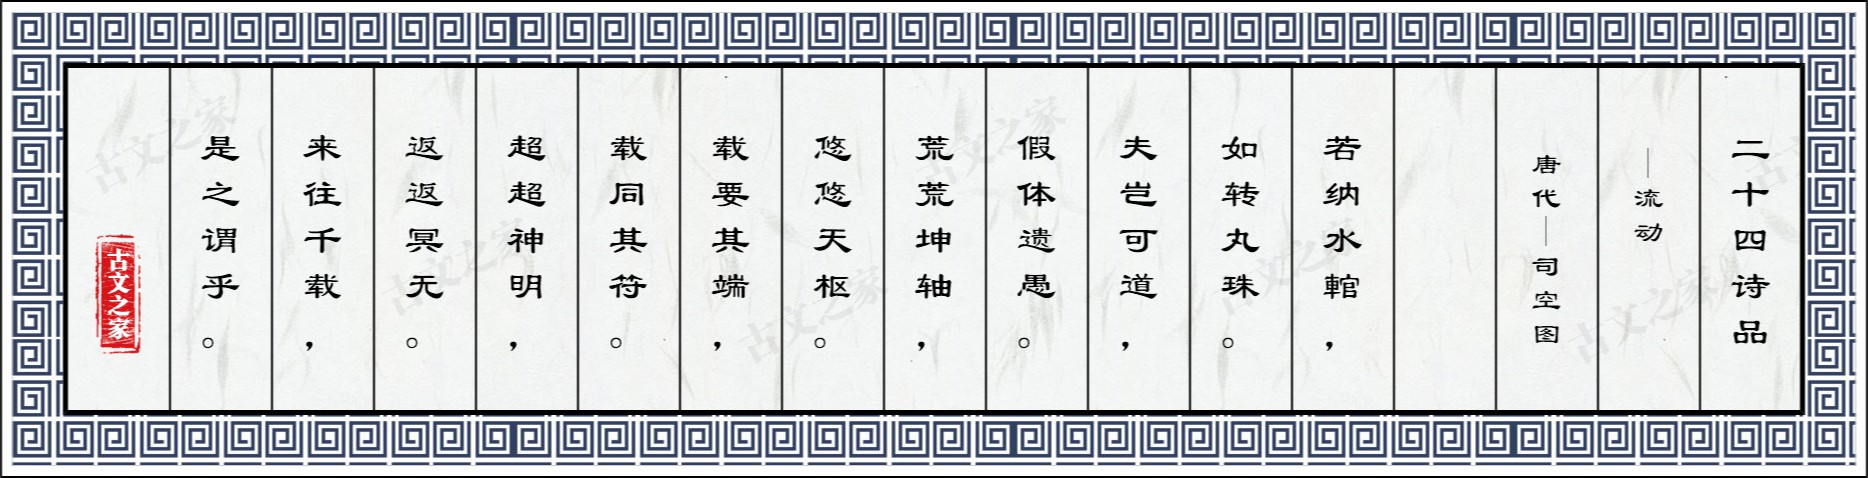 二十四诗品
—流动
唐代—司空图
若纳水輨，
如转丸珠。
夫岂可道，
假体遗愚。
荒荒坤轴，
悠悠天枢。
载要其端，
载同其符。
超超神明，
返返冥无。
来往千载，
是之谓乎。
古文之家